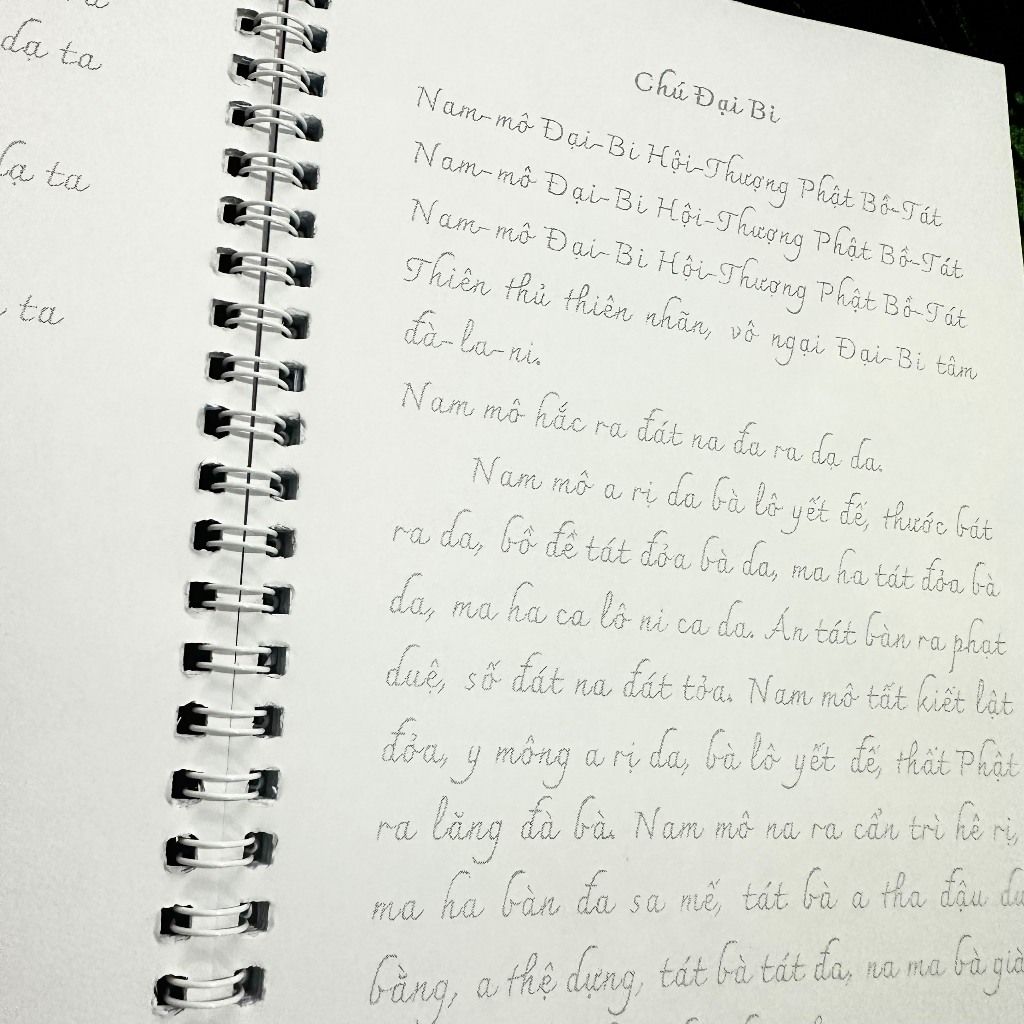 dạ ta
lạ ta
ta
Chú Đại Bi
Nam-mô Đại-Bi Hội-Thượng Phật Bồ-Tát
Nam-mô Đại-Bi Hội-Thượng Phật Bồ-Tát
Nam-mô Đại-Bi Hội-Thượng Phật Bồ-Tát
Thiên thủ thiên nhãn, vô ngại Đại-Bi tâm
đà-la-ni.
Nam mô hắc ra đát na đa ra dạ da.
Nam mô a rị da bà lô yết đế, thước bát
ra da, bồ đề tát đỏa bà da, ma ha tát đỏa bà
da, ma ha ca lô ni ca da. Án tát bàn ra phạt
duệ, số đát na đát tỏa. Nam mô tất kiết lật
đỏa, y mông a rị da, bà lô yết đế, thất Phật
ra lăng đà bà. Nam mô na ra cẩn trì hê rị,
ma ha bàn đa sa mế, tát bà a tha đậu du
bằng, a thệ dựng, tát bà tát đa, na ma bà già